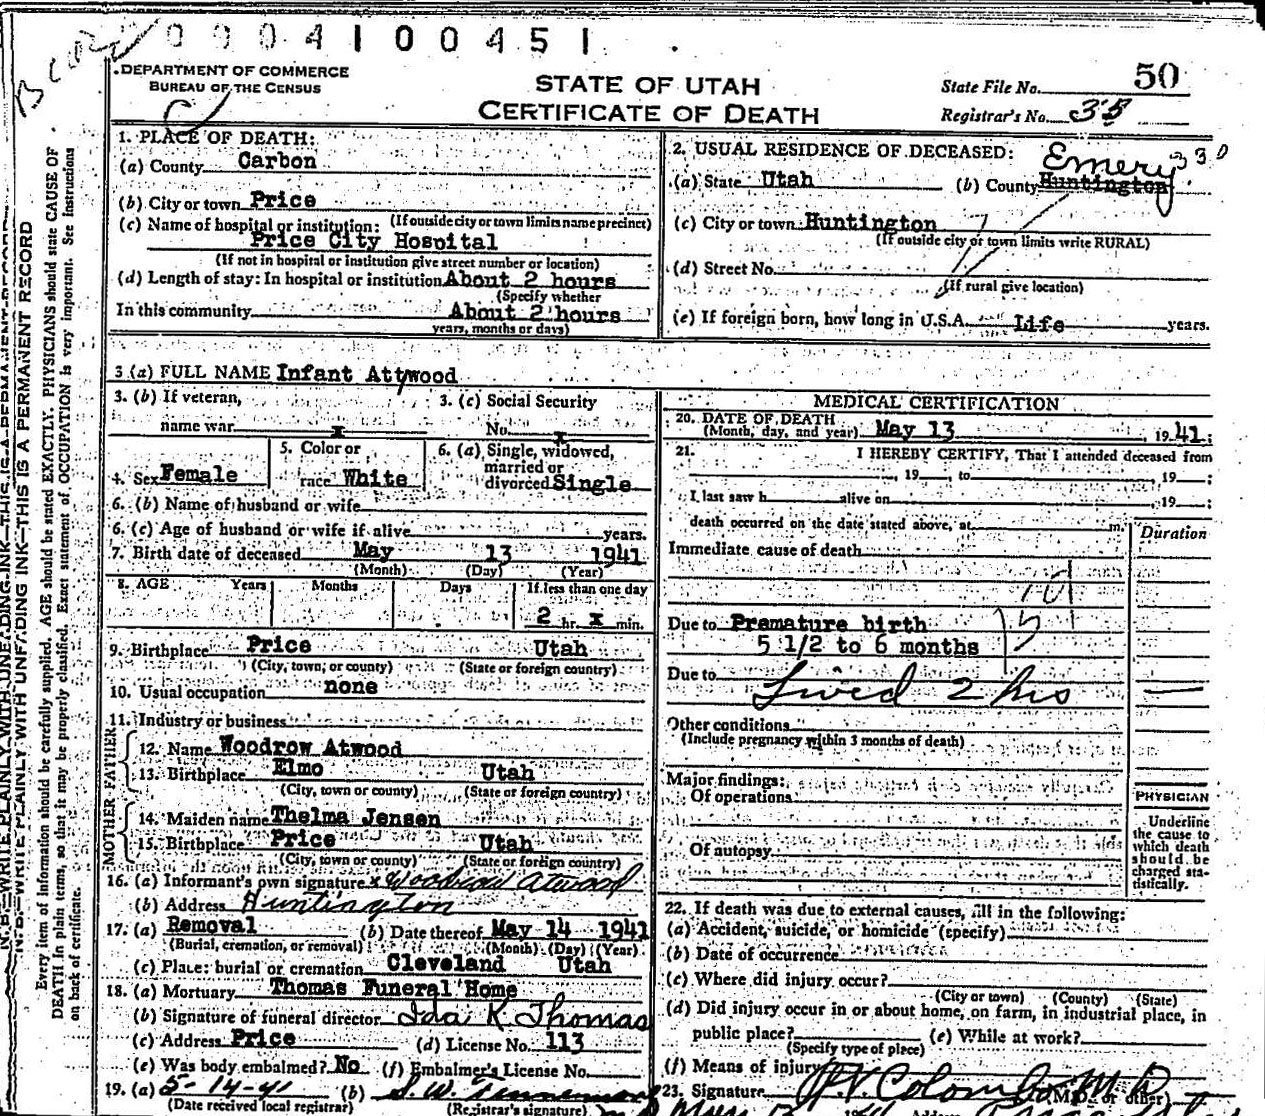 0004100451
DEPARTMENT OF COMMERCE
BUREAU OF THE CENSUS
STATE OF UTAH
CERTIFICATE OF DEATH
State File No. 50
Registrar's No. 35
N.B.—WRITE PLAINLY WITH UNFADING INK—THIS IS A PERMANENT RECORD
Every item of information should be carefully supplied. AGE should be stated EXACTLY. PHYSICIANS should state CAUSE OF
DEATH in plain terms, so that it may be properly classified. Exact statement of OCCUPATION is very important. See instructions
on back of certificate.
1. PLACE OF DEATH:
(a) County Carbon
(b) City or town Price
(c) Name of hospital or institution: (If outside city or town limits name precinct)
Price City Hospital
(If not in hospital or institution give street number or location)
(d) Length of stay: In hospital or institution About 2 hours
(Specify whether
In this community About 2 hours
years, months or days)
2. USUAL RESIDENCE OF DECEASED:
Emery 330
(a) State Utah (b) County Huntington
(c) City or town Huntington
(If outside city or town limits write RURAL)
(d) Street No.
(If rural give location)
(e) If foreign born, how long in U.S.A. Life years.
3 (a) FULL NAME Infant Attwood
3. (b) If veteran, 3. (c) Social Security
name war x No. x
4. Sex Female 5. Color or race White 6. (a) Single, widowed, married or divorced Single
6. (b) Name of husband or wife
6. (c) Age of husband or wife if alive years.
7. Birth date of deceased May 13 1941
(Month) (Day) (Year)
8. AGE Years Months Days If less than one day
2 hr. x min.
9. Birthplace Price Utah
(City, town, or county) (State or foreign country)
10. Usual occupation none
11. Industry or business
FATHER
12. Name Woodrow Atwood
13. Birthplace Elmo Utah
(City, town or county) (State or foreign country)
MOTHER
14. Maiden name Thelma Jensen
15. Birthplace Price Utah
(City, town or county) (State or foreign country)
16. (a) Informant's own signature x Woodrow Atwood
(b) Address Huntington
17. (a) Removal (b) Date thereof May 14 1941
(Burial, cremation, or removal) (Month) (Day) (Year)
(c) Place: burial or cremation Cleveland Utah
18. (a) Mortuary Thomas Funeral Home
(b) Signature of funeral director Ida K Thomas
(c) Address Price (d) License No. 113
(e) Was body embalmed? No (f) Embalmer's License No.
19. (a) 5-14-41 (b) S. W.
(Date received local registrar) (Registrar's signature)
MEDICAL CERTIFICATION
20. DATE OF DEATH
(Month, day, and year) May 13, 1941
21. I HEREBY CERTIFY, That I attended deceased from
, 19 , to , 19 ;
I last saw h alive on , 19 ;
death occurred on the date stated above, at m.
Duration
Immediate cause of death
Due to Premature birth
5 1/2 to 6 months
Due to
Lived 2 hrs
Other conditions
(Include pregnancy within 3 months of death)
Major findings:
Of operations
Of autopsy
PHYSICIAN
Underline
the cause to
which death
should be
charged sta-
tistically.
22. If death was due to external causes, fill in the following:
(a) Accident, suicide, or homicide (specify)
(b) Date of occurrence
(c) Where did injury occur?
(City or town) (County) (State)
(d) Did injury occur in or about home, on farm, in industrial place, in
public place? (e) While at work?
(Specify type of place)
(f) Means of injury
23. Signature Colombo M D (M.D. or other)